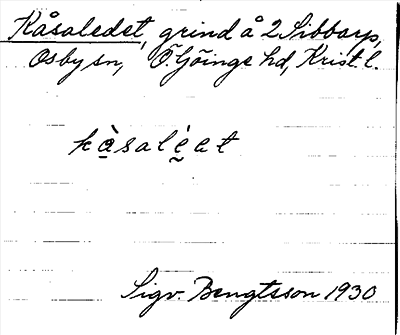 Kåsaledet, grind å 2 Sibbarp,
Osby sn, Ö. Göinge hd, Krist. l.
kàsalé̬et
Sigv. Bengtsson 1930